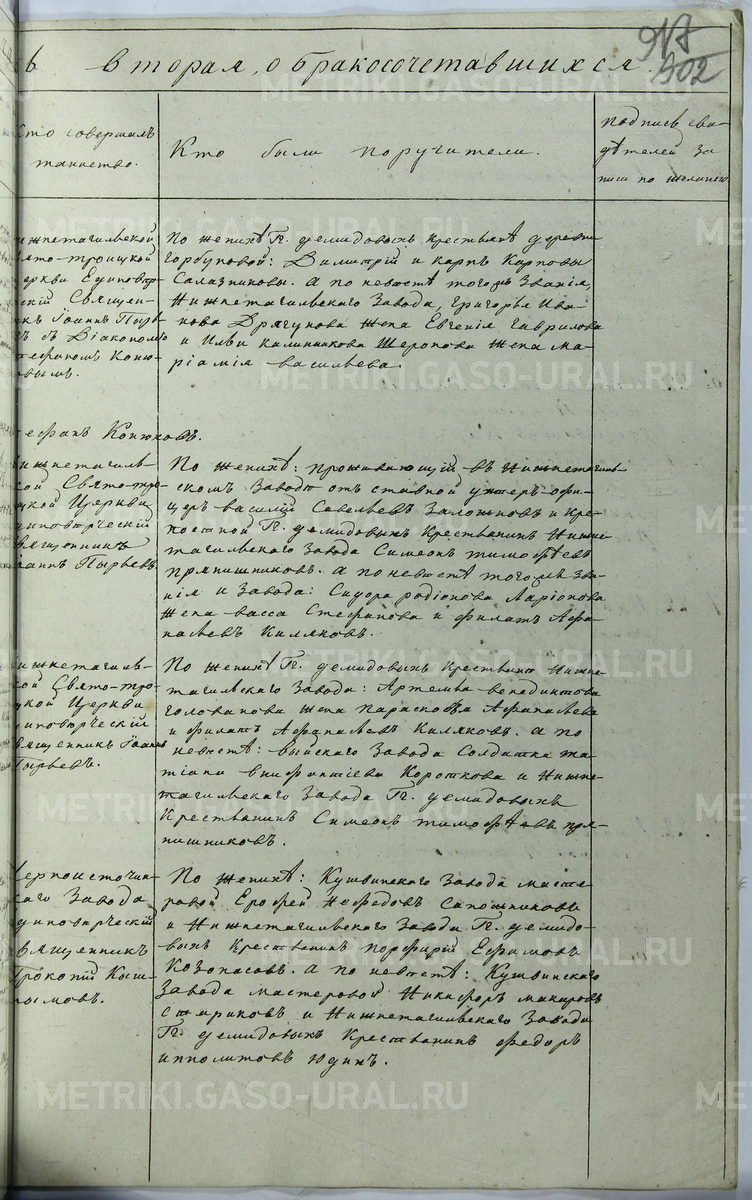 917
302
вторая, о бракосочетавшихся.
Кто совершалъ
таинство.
Кто были поручители.
Подпись сви-
дѣтелей за-
писи по желанію
ижнетагильской
вято-троицкой
церкви Единовѣр-
скій Священ-
икъ Іоаннъ Пырь-
въ съ Діакономъ
тефаномъ Коню-
овымъ.
По женихѣ Гг. демидовыхъ крестьяне деревни
горбуновой: Димитрій и карпъ Карповы
Салазниковы. а по невѣстѣ тогожъ Званія,
Нижнетагильскаго Завода, Григорья Ива-
нова Драгунова жена Евгенія Гаврилова
и Ильи калинникова Шеронова жена Ма-
ріамія васильева.
тефанъ Конюховъ.
ижнетагиль-
кой Свято-тро-
цкой Церкви
диновѣрческій
вященникъ
оаннъ Пырьевъ
По женихѣ: проживающій въ Нижнетагиль-
скомъ Заводѣ отставной унтеръ-офи-
церъ василій Савельевъ Заложновъ и кре-
постной Гг. демидовыхъ Крестьянинъ Нижне-
тагильскаго Завода Симеонъ тимофѣевъ
Пряпишниковъ. а по невѣстѣ тогожъ Зва-
нія и Завода: Сидора родіонова Ларіонова
жена васса Стефанова и филатъ Афа-
насьевъ Киляковъ.
ижнетагиль-
кой Свято-тро-
цкой Церкви
диновѣрческій
вященникъ Іоаннъ
Пырьевъ.
По женихѣ Гг. демидовыхъ крестьянъ Нижне-
тагильскаго Завода: Артемья венедиктова
голованова жена Парасковья Афанасьева
и филатъ Афанасьевъ Киляковъ. а по
невѣстѣ: выйскаго Завода Солдатка та-
тіана внифантіева Короткова и Нижне-
тагильскаго Завода Гг. демидовыхъ
Крестьянинъ Симеонъ тимофѣевъ пря-
пишниковъ.
Черноисточин-
каго Завода
диновѣрческій
вященникъ
Прокопій Кыш-
тымовъ.
По женихѣ: Кушвинскаго Завода масте-
ровой Ерофей Нефедовъ Сапожниковъ
и Нижнетагильскаго Завода Гг. демидо-
выхъ Крестьянинъ порфирій Ефимовъ
Козопасовъ. а по невѣстѣ: Кушвинскаго
Завода мастеровой Никифоръ макаровъ
стариковъ и Нижнетагильскаго Завода
Гг. демидовыхъ Крестьянинъ федоръ
ипполитовъ Юдинъ.
METRIKI.GASO-URAL.RU